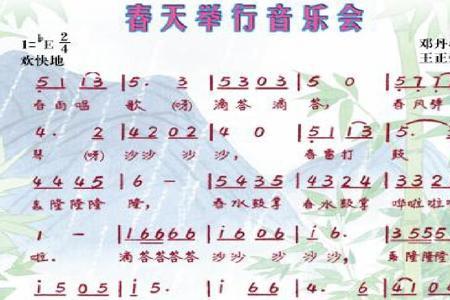 春天举行音乐会
1=♭E 2/4 邓丹
欢快地 王正
5 1 1 3 | 5. 3 | 5 3 0 3 | 5 0 | 5 7 7
春雨唱 歌 (呀) 滴答 滴答, 春风弹
4. 2 | 4 2 0 2 | 4 0 | 5 1 1 3 | 5. 3
琴 (呀) 沙沙 沙沙, 春雷打 鼓
4 4 4 5 | 6 - | 5 4 3 5 | 4 3 2 4 | 3 3 2
隆隆隆 隆, 春水鼓掌 春水鼓掌 哗啦啦
1 - | 1 6 6 6 6 | i 6 0 6 | i 6. | 3 5 5 5
啦。 滴答答答答 沙沙 沙 沙沙, 隆隆隆
i 5 0 5 | i 5. | i 6 0 6 | i 6. 6 | 4 i 0